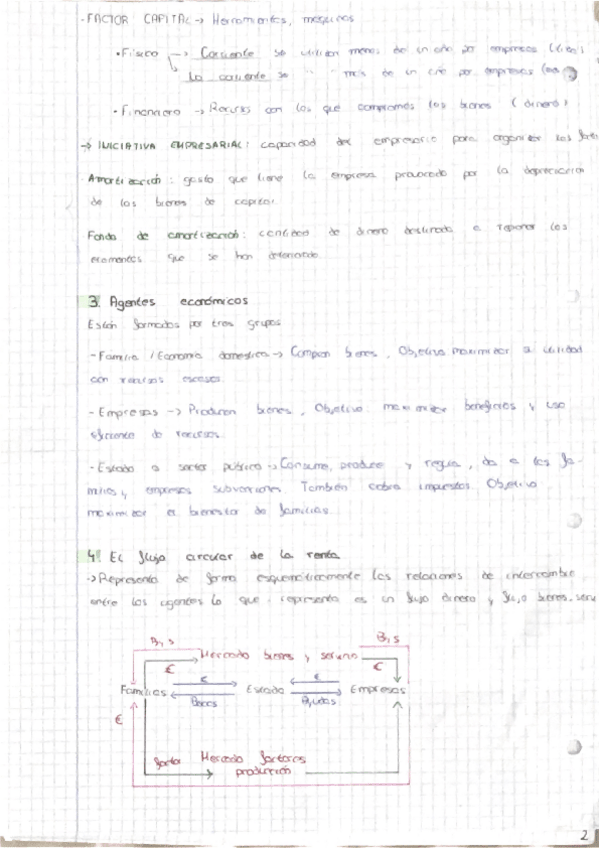 ·FACTOR CAPITAL → Herramientas, máquinas
·Físico → Corriente se utilizan menos de un año por empresas
↳ No corriente se " " más de un año por empresas
·Financiero → Recursos con los que compramos los bienes (dinero)
→ INICIATIVA EMPRESARIAL: capacidad del empresario para organizar los
Amortización: gasto que tiene la empresa provocado por la depreciación
de los bienes de capital.
Fondo de amortización: cantidad de dinero destinada a reponer los
elementos que se han deteriorado
3. Agentes económicos
Están formados por tres grupos
- Familia / Economía doméstica → Compran bienes, Objetivo maximizar utilidad
con recursos escasos.
- Empresas → Producen bienes, Objetivo: maximizar beneficios y uso
eficiente de recursos.
- Estado o sector público → Consume, produce y regula, da a las fa-
milias y empresas subvenciones. También cobra impuestos. Objetivo
maximizar el bienestar de familias.
4. El flujo circular de la renta
→ Representa de forma esquemáticamente las relaciones de intercambio
entre los agentes lo que representa es un flujo dinero y flujo bienes
B, S B, S
Mercado bienes y
€ €
€ €
Familias Estado Empresas
Becas Ayudas
€
Mercado factores
producción
2